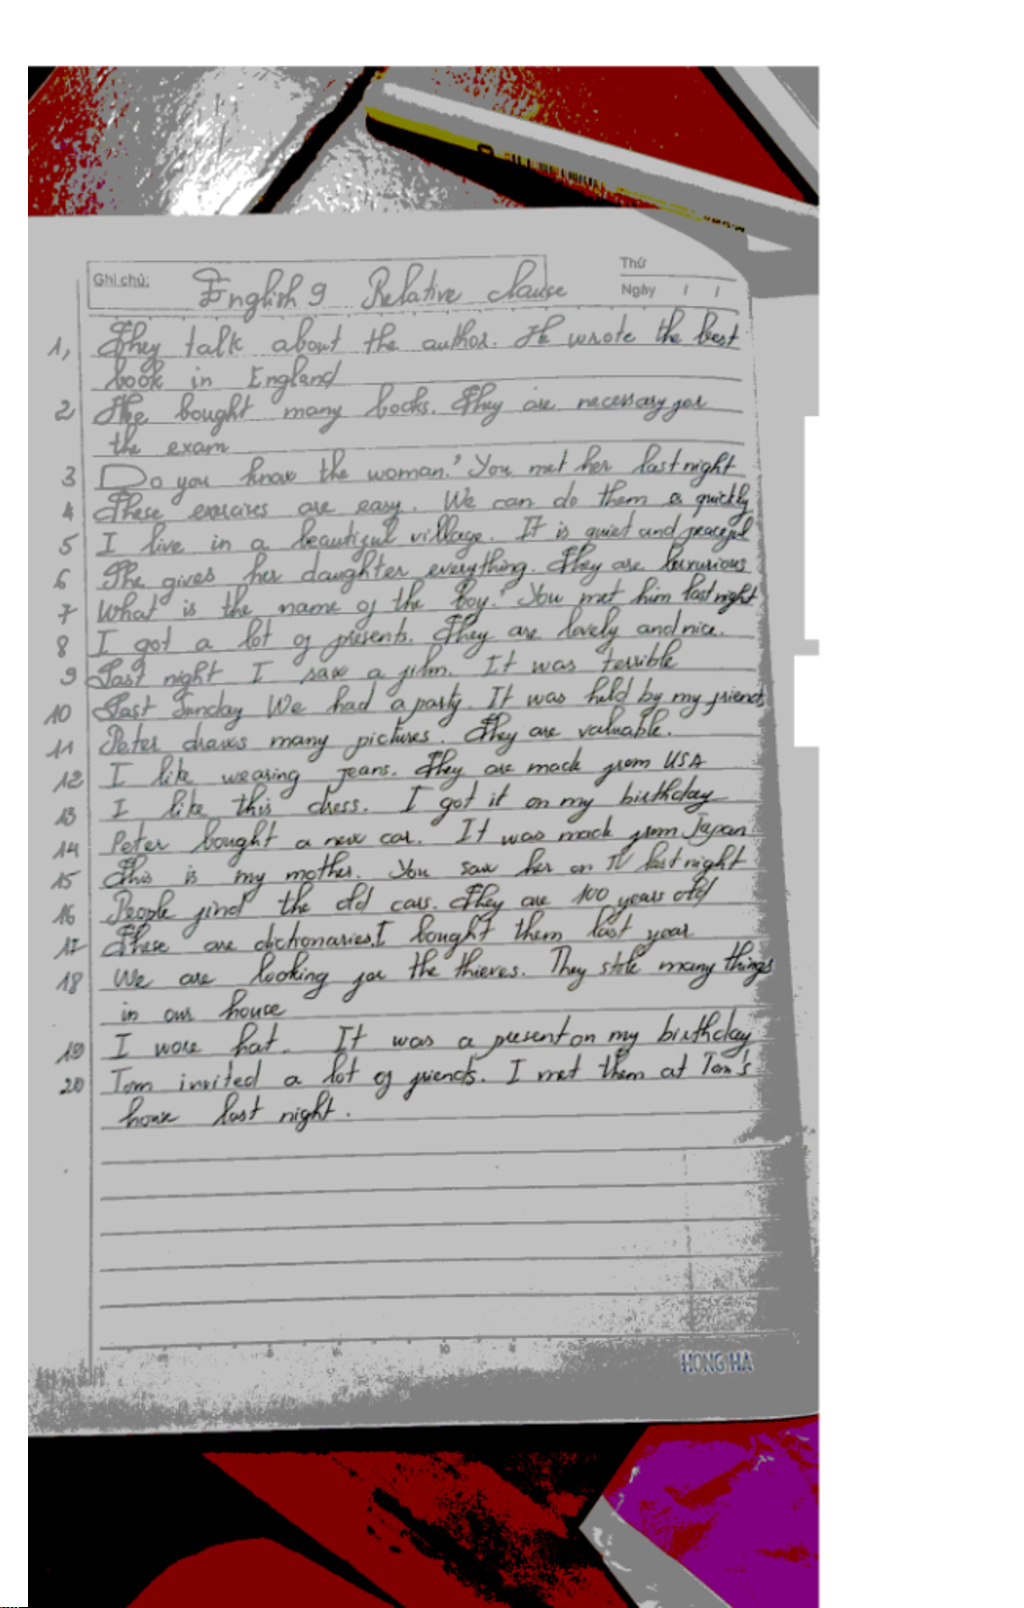 Ghi chú:
Thứ
English 9 Relative clause
Ngày / /
1, They talk about the author. He wrote the best
book in England
2 He bought many books. They are necessary for
the exam
3 Do you know the woman? You met her last night
4 These exercises are easy. We can do them quickly
5 I live in a beautiful village. It is quiet and peaceful
6 She gives her daughter everything. They are luxurious
7 What is the name of the boy? You met him last night
8 I got a lot of presents. They are lovely and nice.
9 Last night I saw a film. It was terrible
10 Last Sunday We had a party. It was held by my friends
11 Peter draws many pictures. They are valuable.
12 I like wearing jeans. They are made from USA
13 I like this dress. I got it on my birthday
14 Peter bought a new car. It was made from Japan
15 This is my mother. You saw her on TV last night
16 People find the old cars. They are 100 years old
17 These are dictionaries. I bought them last year
18 We are looking for the thieves. They stole many things
in our house
19 I wore hat. It was a present on my birthday
20 Tom invited a lot of friends. I met them at Tom's
house last night.
HONG HA